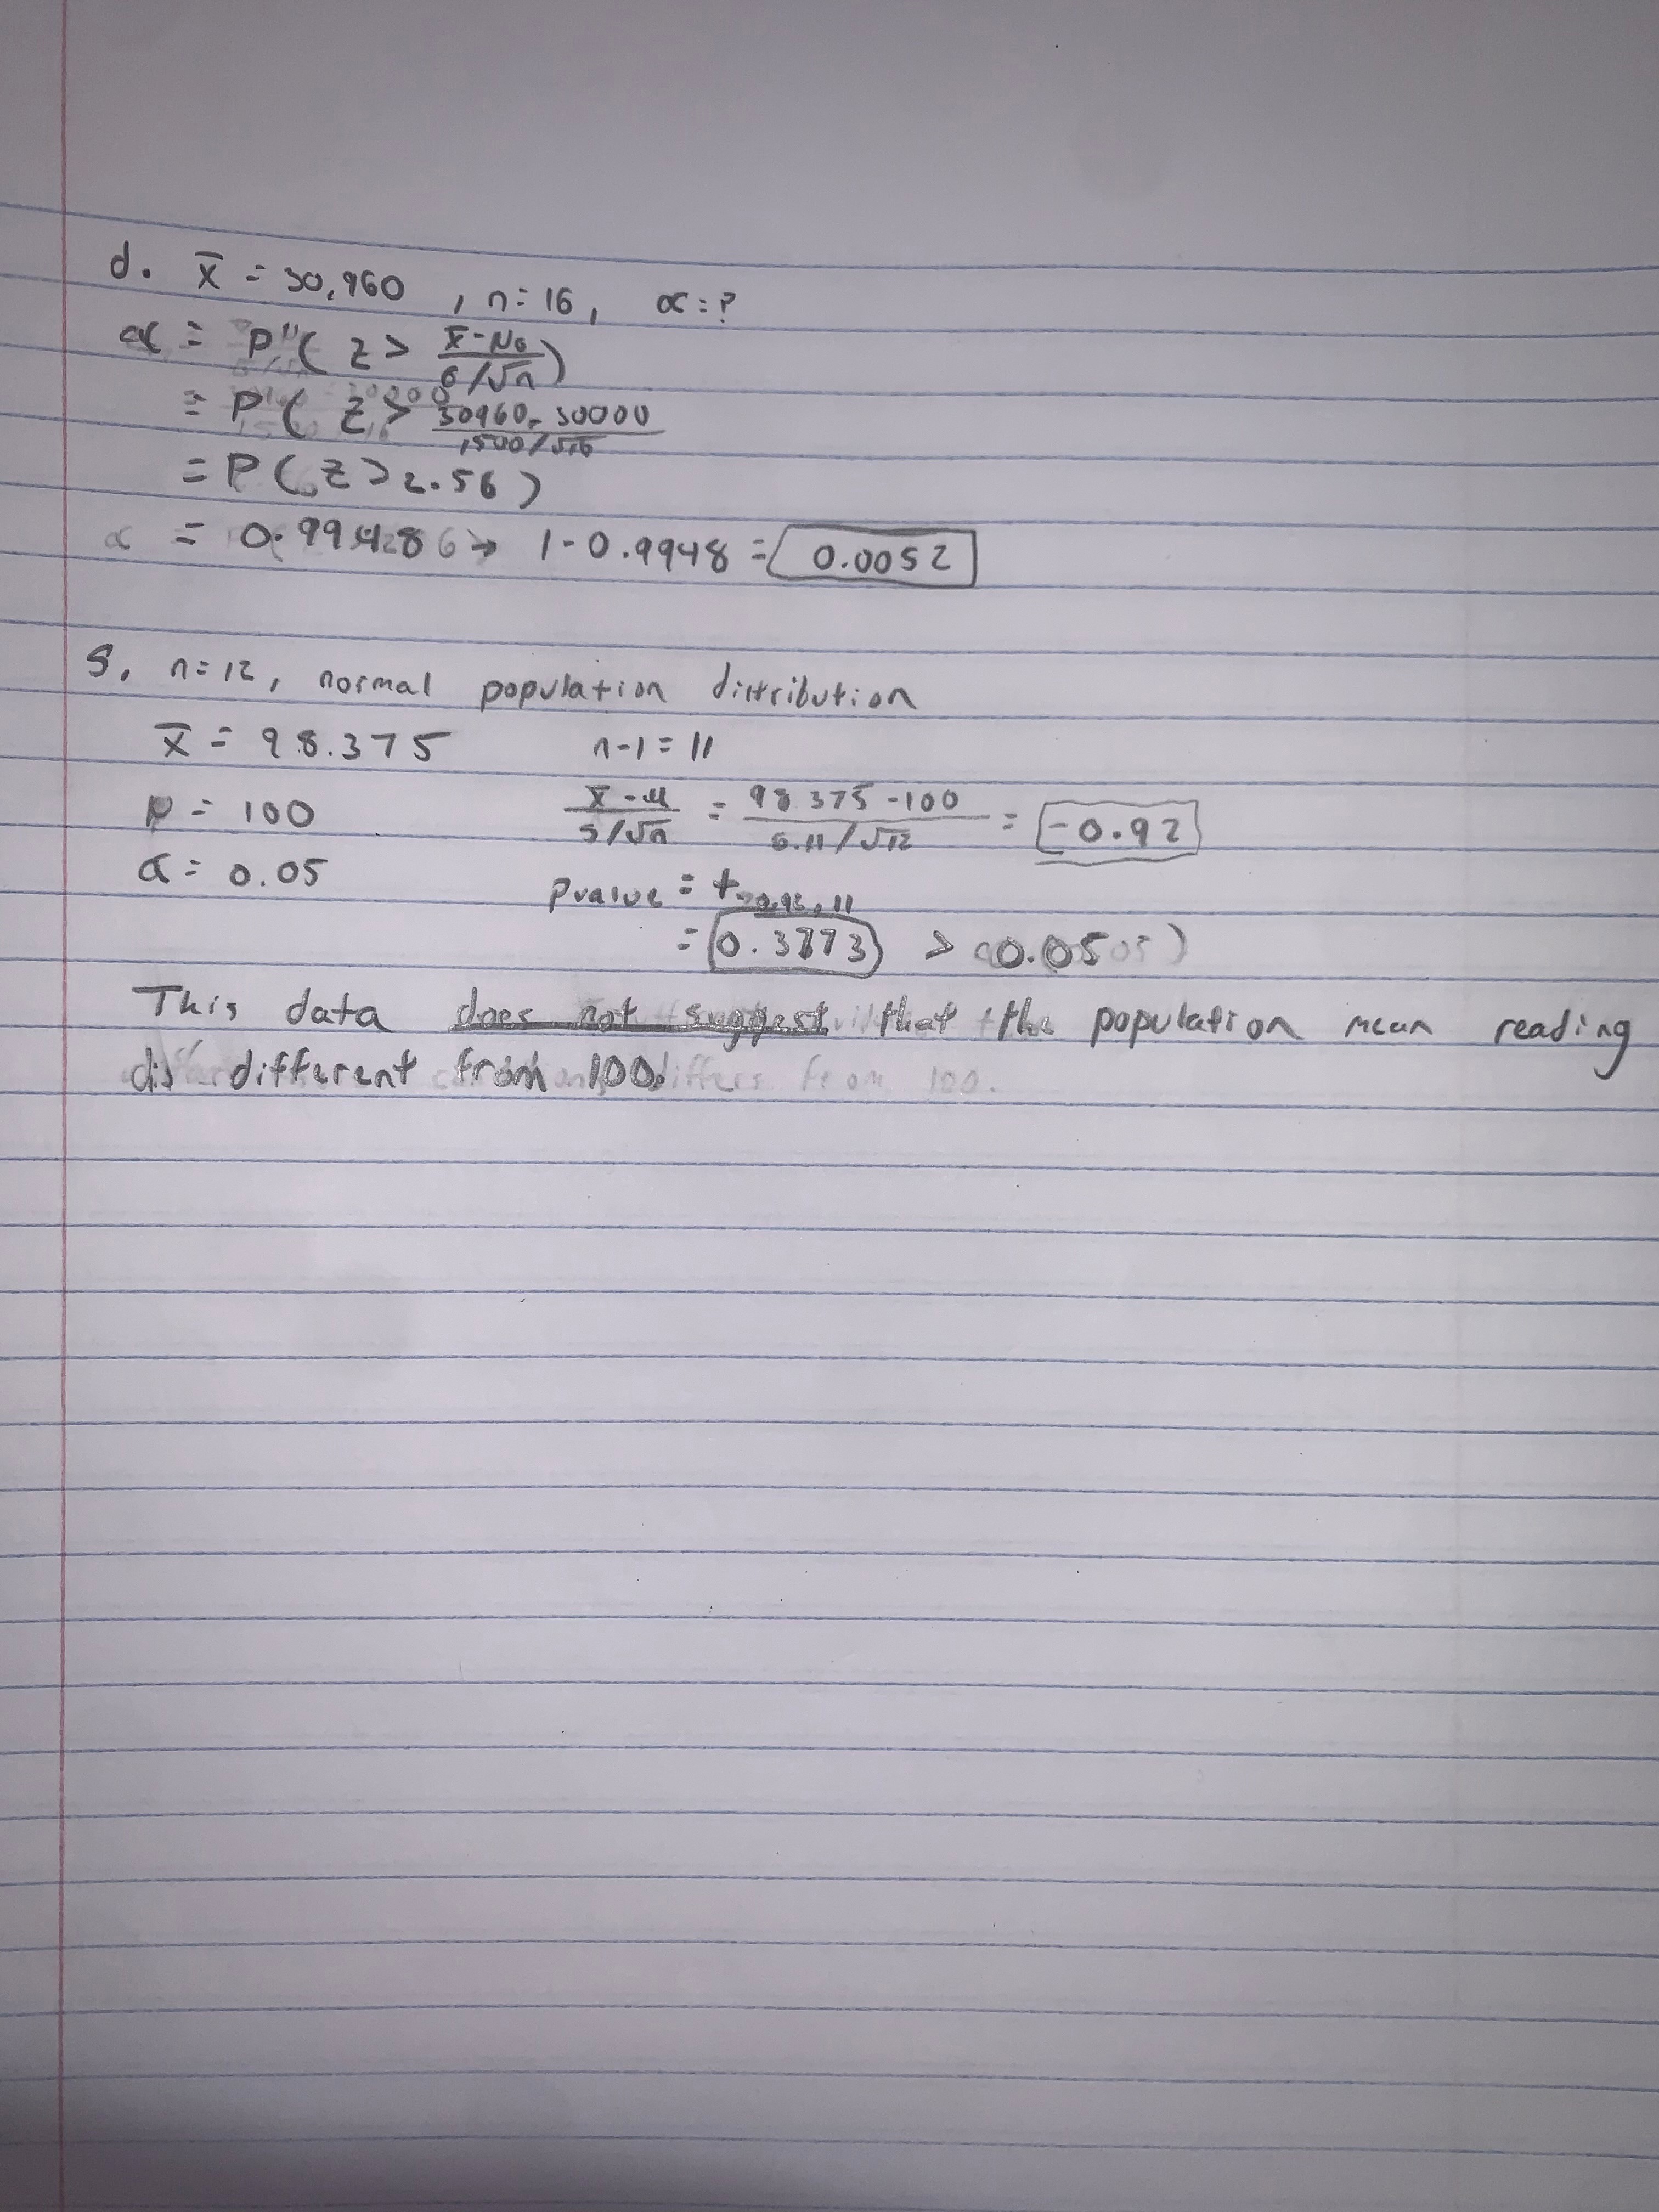 d. x̄ = 30,960 , n = 16, α = ?
α = P ( Z > (x̄ - μ₀)/(σ/√n) )
= P ( Z > (30960 - 30000)/(1500/√16)
= P ( Z > 2.56 )
α = 0.99 → 1 - 0.9948 = 0.0052
5. n = 12, normal population distribution
x̄ = 98.375 n - 1 = 11
μ = 100 (x̄ - μ)/(s/√n) = (98.375 - 100)/(6.11/√12) = -0.92
α = 0.05
pvalue = t-0.92, 11
= 0.3773 > 0.05
This data does not suggest that the population mean reading
is different from 100.